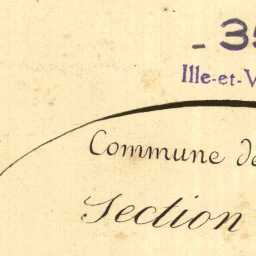 - 35
Ille-et-V
Commune de
Section